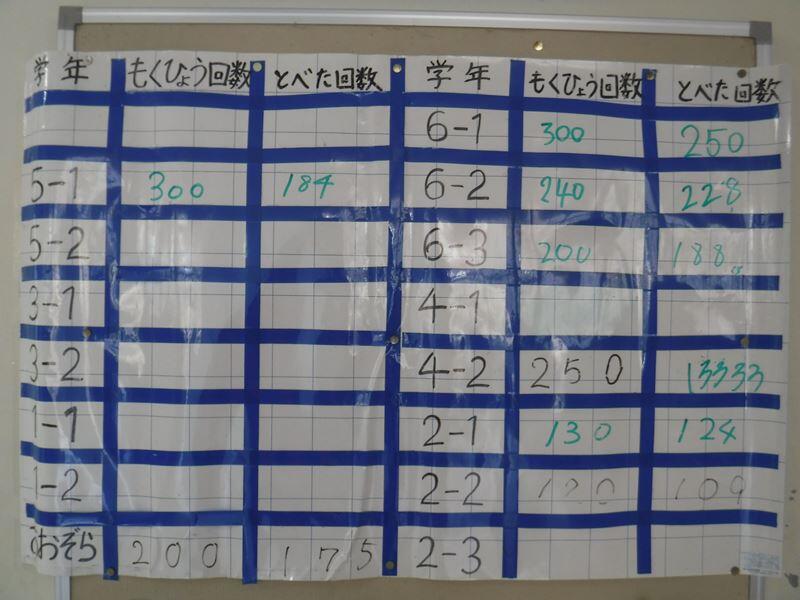 学年 もくひょう回数 とべた回数 学年 もくひょう回数 とべた回数
6-1 300 250
5-1 300 184 6-2 240 228
5-2 6-3 200 188
3-1 4-1
3-2 4-2 250 13333
1-1 2-1 130 124
1-2 2-2 120 109
おおぞら 200 175 2-3